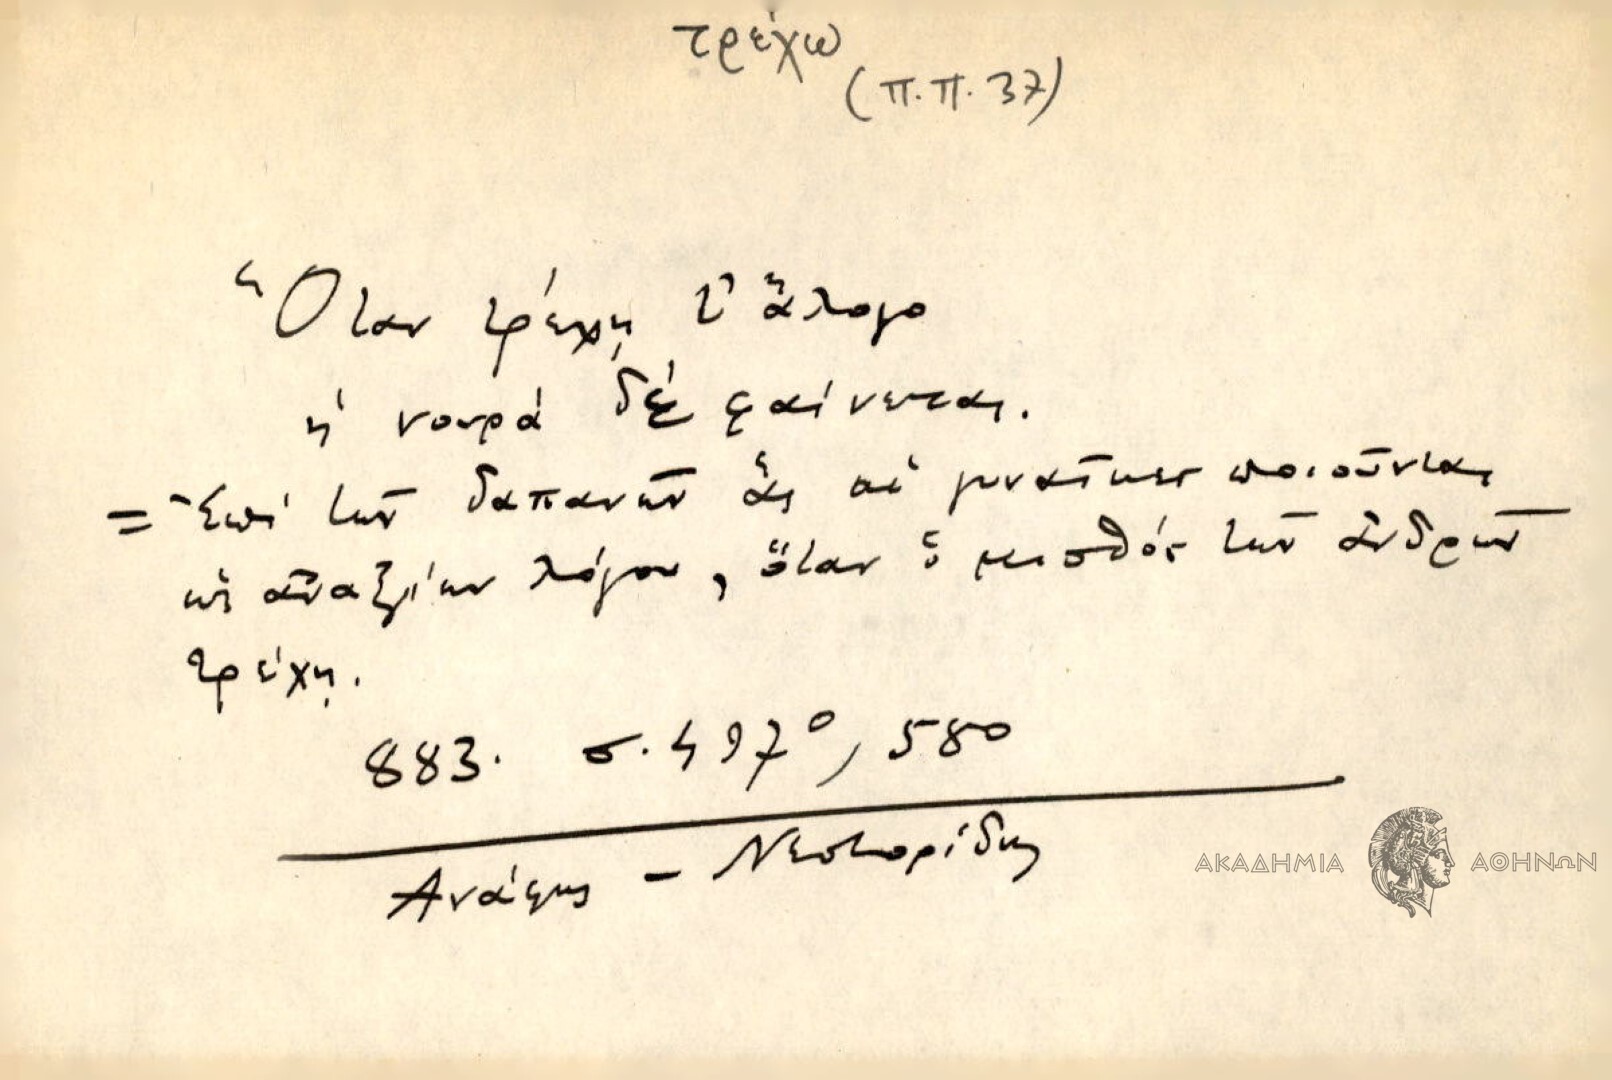 τρέχω
(π.π. 37)
Ὅταν τρέχῃ τ' ἄλογο
ἡ νουρά δέ φαίνεται.
= Ἐπί τῶν δαπανῶν ἅς αἱ γυναῖκες ποιοῦνται
ὡς ἀναξίων λόγου, ὅταν ὁ μισθός τῶν ἀνδρῶν
τρέχῃ.
883. σ. 497º, 580
- Νεστορίδης
ΑΚΑΔΗΜΙΑ ΑΘΗΝΩΝ